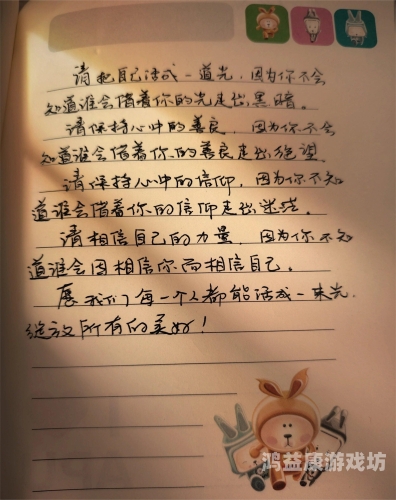 请把自己活成一道光，因为你不会
知道谁会借着你的光走出黑暗。
请保持心中的善良，因为你不会
知道谁会借着你的善良走出绝望。
请保持心中的信仰，因为你不知
道谁会借着你的信仰走出迷惑。
请相信自己的力量，因为你不知
道谁会因相信你而相信自己。
愿我们每一个人都能活成一束光，
绽放所有的美好！
鸿益康游戏坊